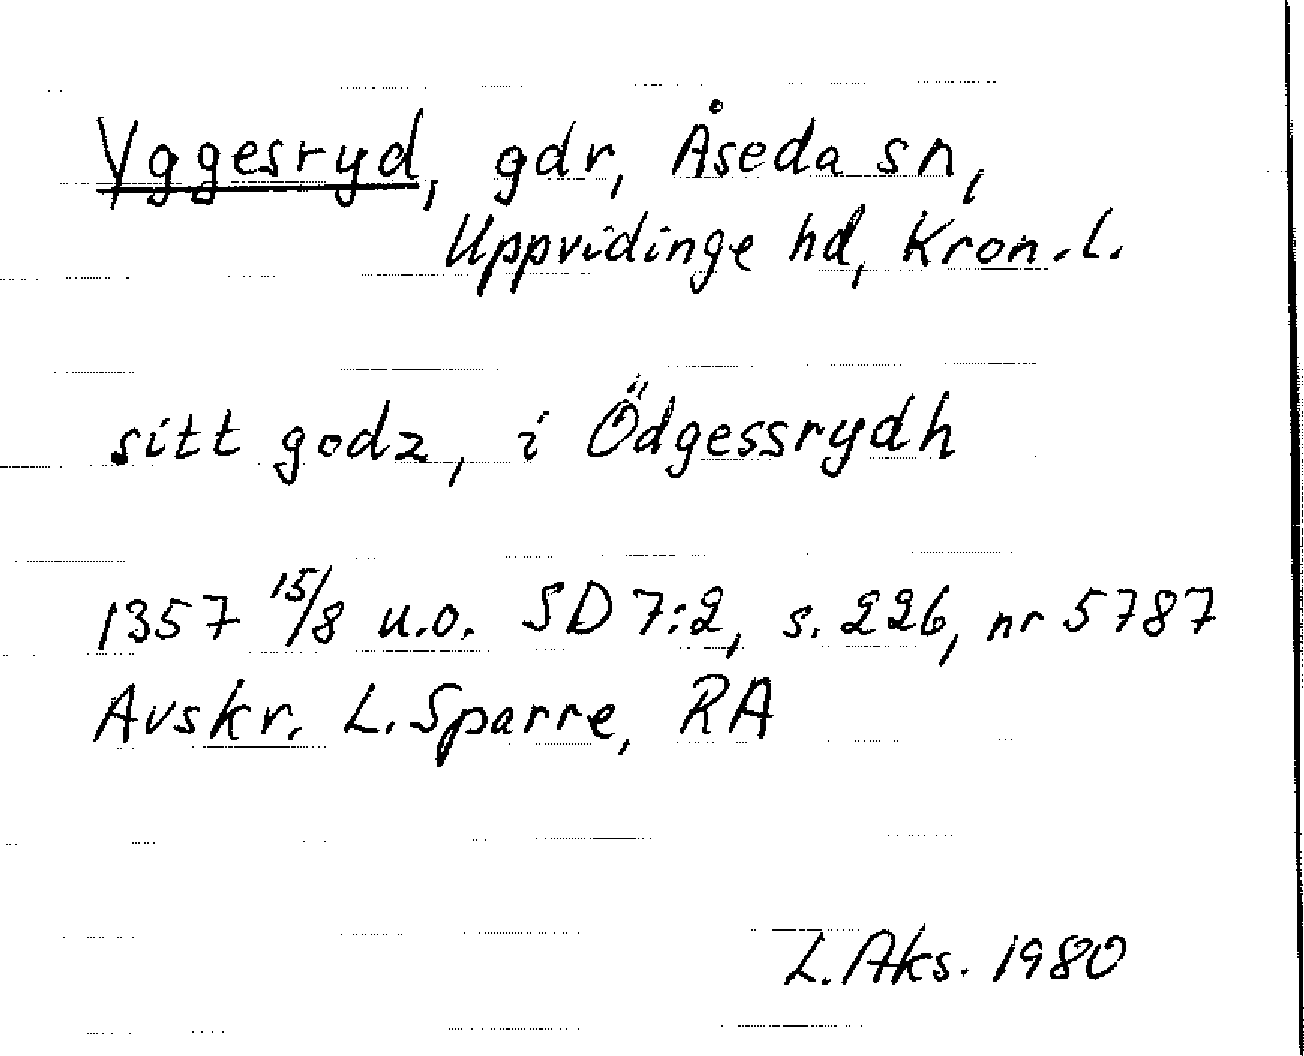 Yggesryd, gdr, Åseda sn,
Uppvidinge hd, Kron.l.
sitt godz, i Ödgessrydh
1357 15/8 u.o. SD 7:2, s. 226, nr 5787
Avskr. L. Sparre, RA
L. Aks. 1980